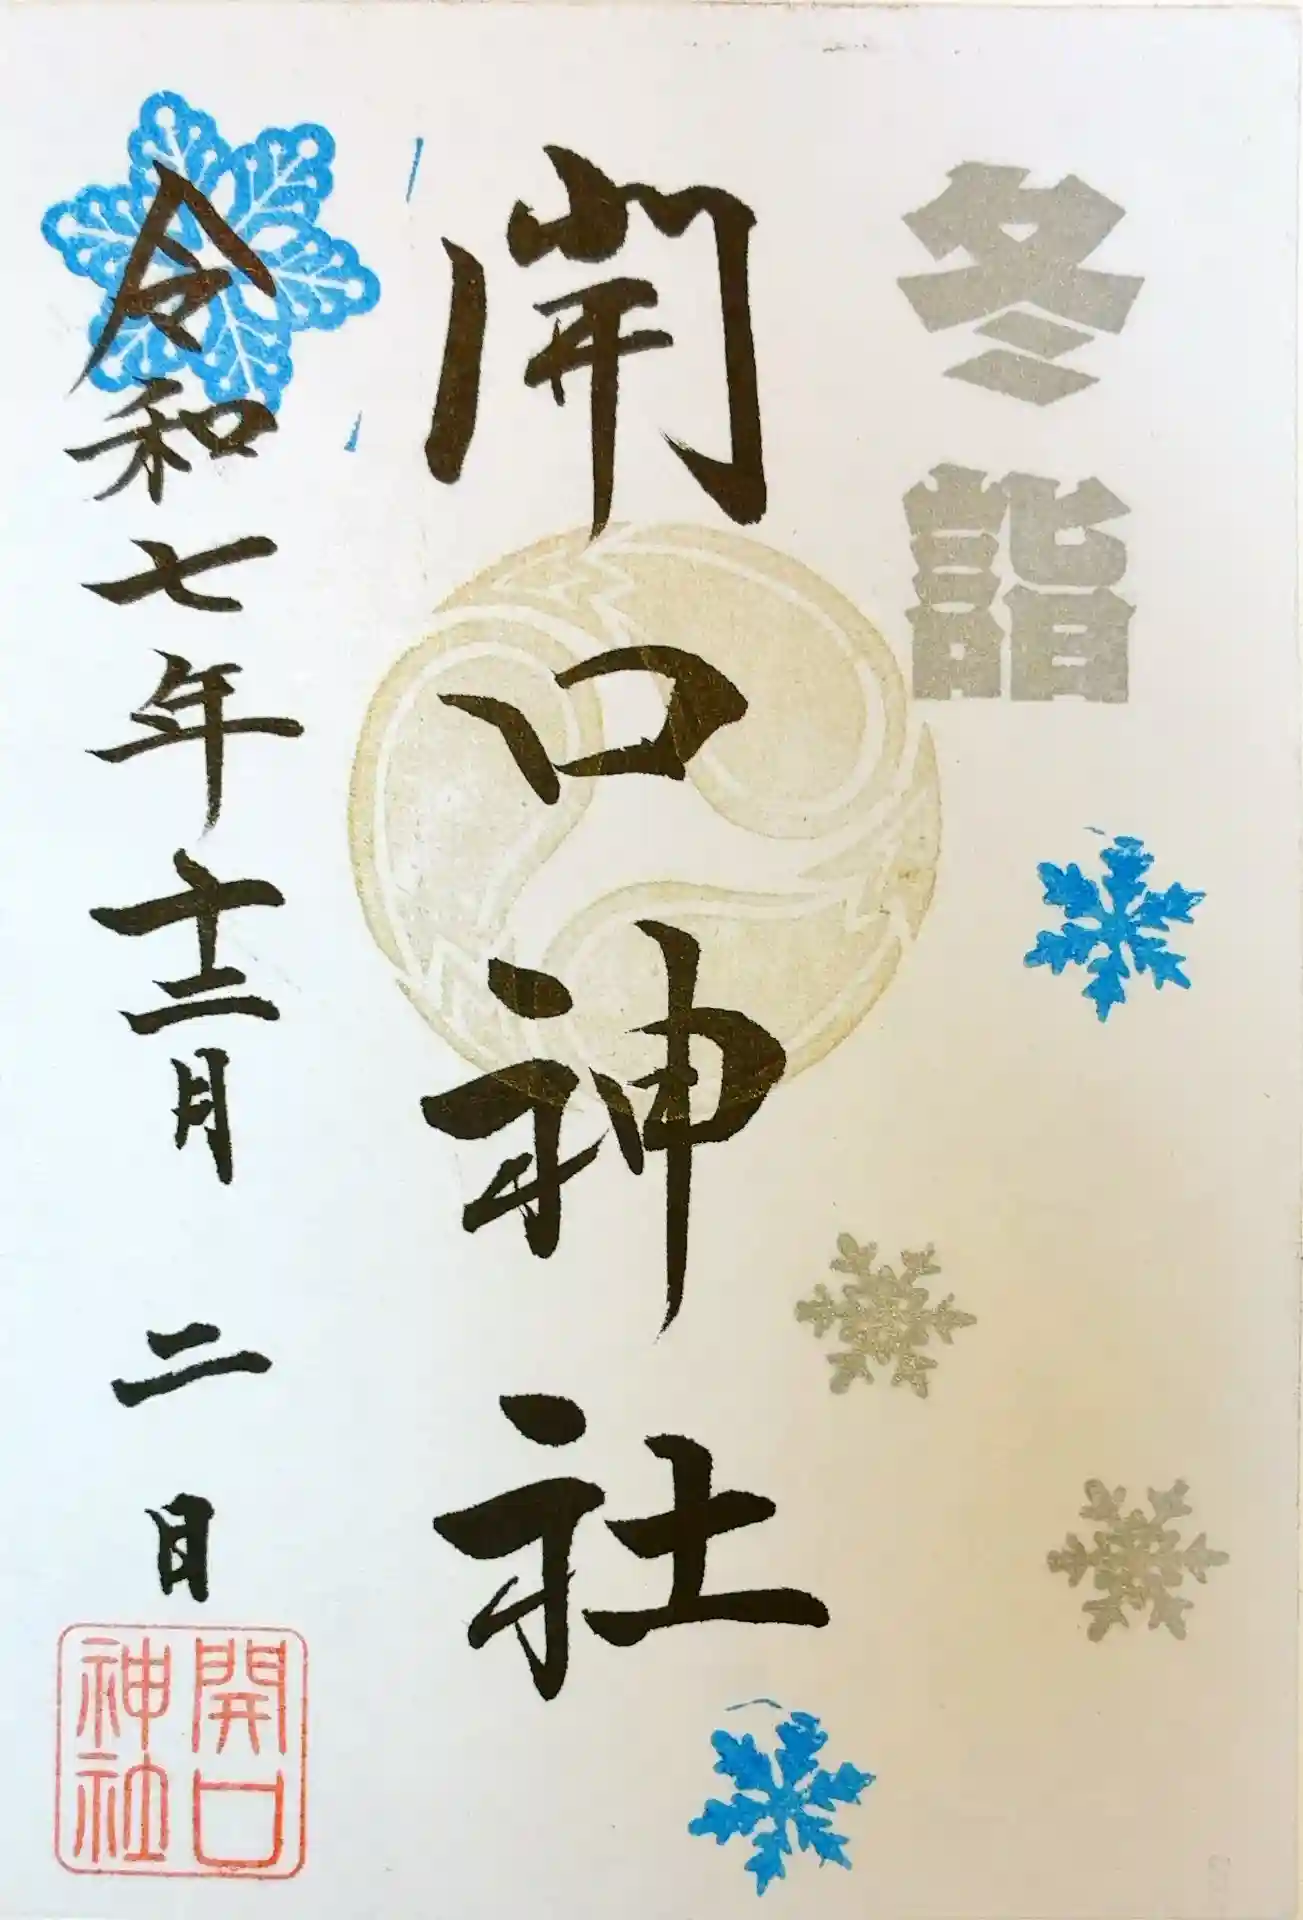 冬詣
開口神社
令和七年十二月 二日
開口
神社